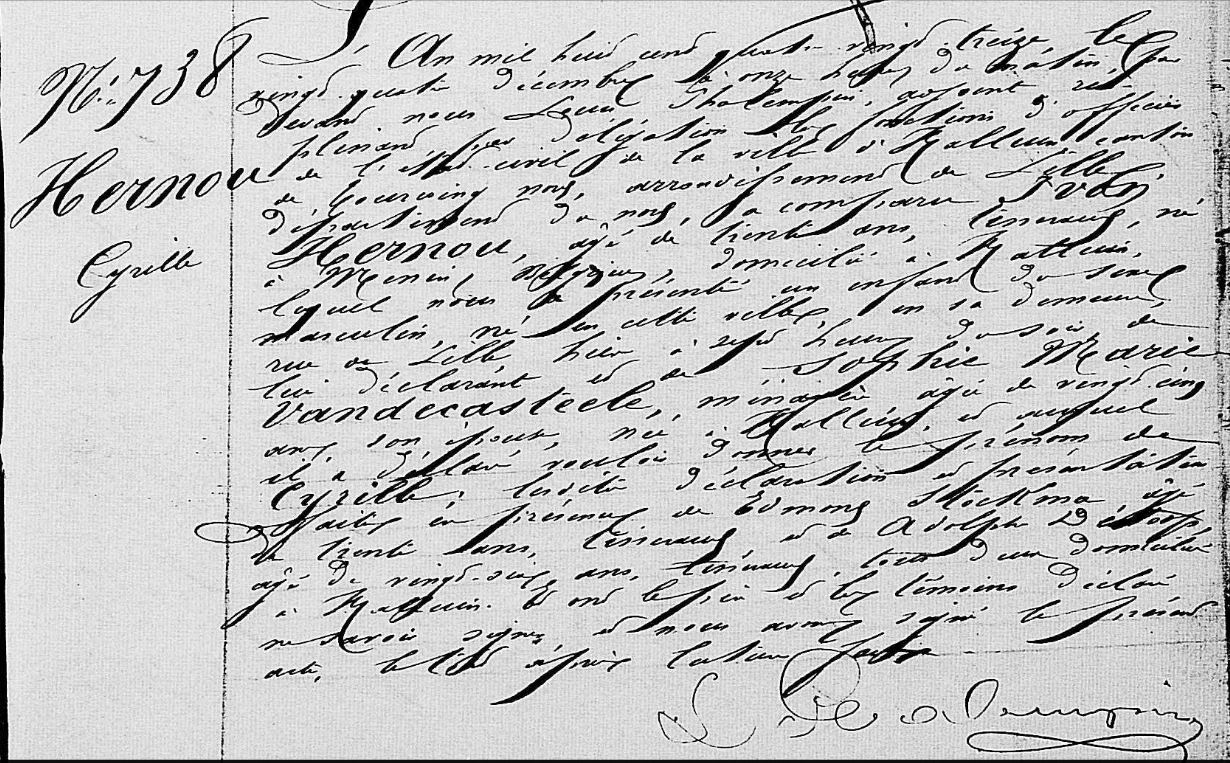 N° 738
Hernou
Cyrille
L'An mil huit cent quatre vingt treize, le
vingt quatre décembre à onze heures du matin, par
devant nous Louis Thalempin, adjoint rem
plissant par délégation les fonctions d'officier
de l'état-civil de la ville d'Halluin, canton
de Tourcoing nord, arrondissement de Lille
département du nord, a comparu Ivon
Hernou, âgé de trente ans, tisserand, né
à Menin Belgique, domicilié à Halluin,
lequel nous a présenté un enfant du sexe
masculin, né en cette ville, en sa demeure,
rue de Lille hier à sept heures du soir, de
lui déclarant et de Sophie Marie
Vandecasteele, ménagère âgée de vingt cinq
ans, son épouse, née à Halluin, et auquel
il a déclaré vouloir donner le prénom de
Cyrille; lesdites déclaration et présentation
faites en présence de Edmond âgé
de trente ans, tisserand et de Adolphe
âgé de vingt-six ans, tisserand, tous deux domiciliés
à Halluin. Et ont le père et les témoins déclaré
ne savoir signer, et nous avons signé le présent
acte, le tout après lecture faite